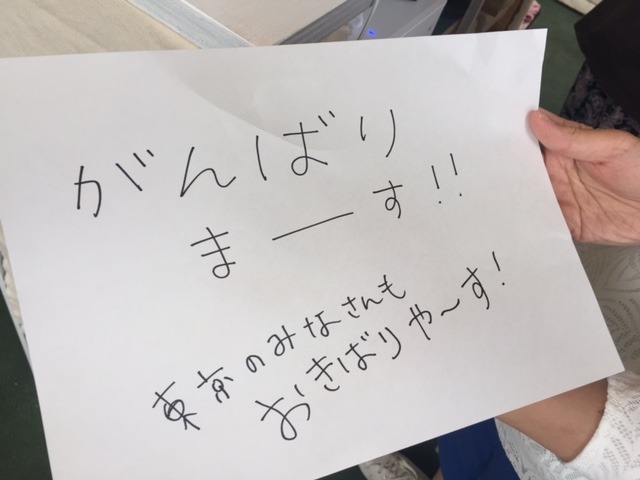 がんばり
まーす!!
東京のみなさんも
おきばりや〜す!